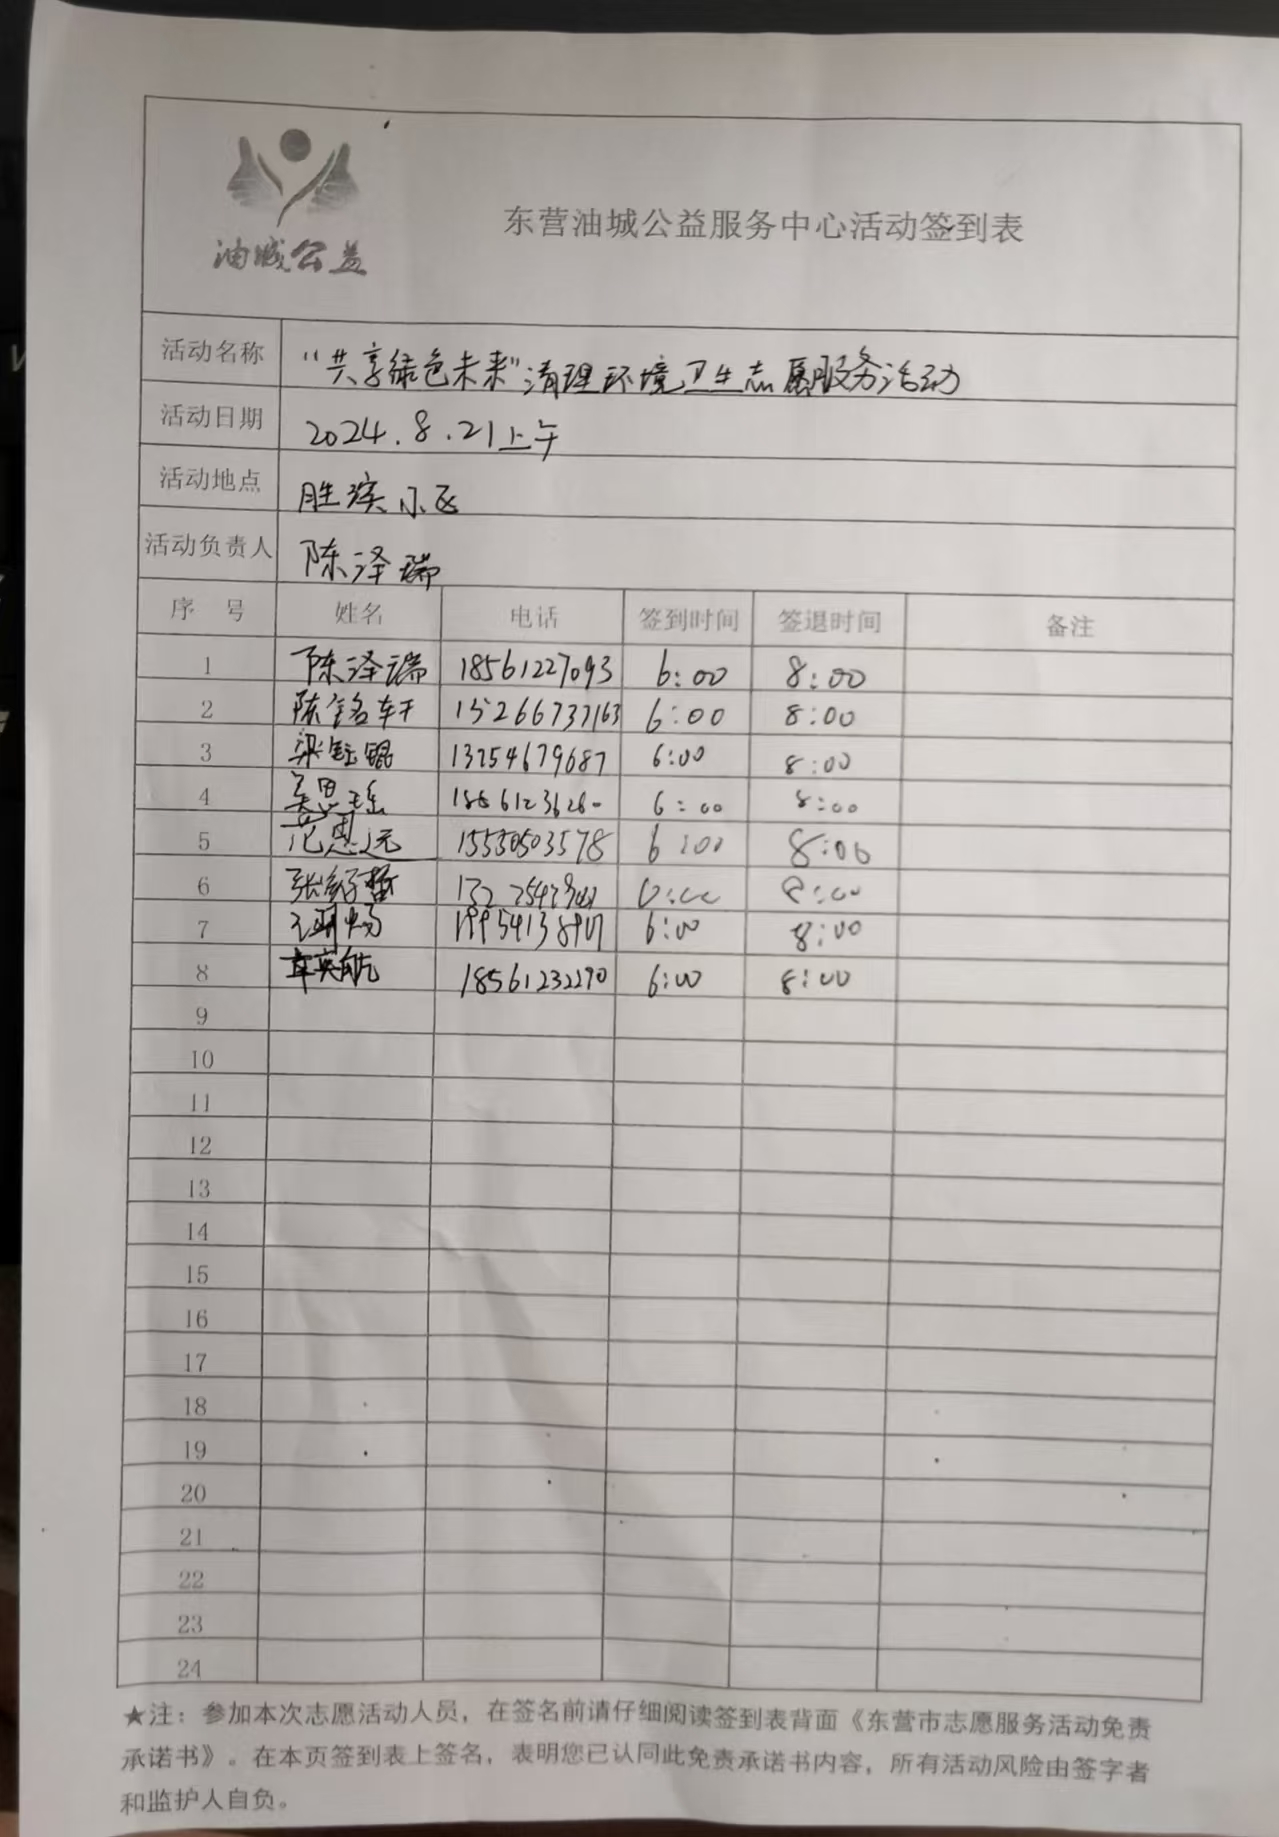 油城公益
东营油城公益服务中心活动签到表
活动名称 “共享绿色未来”清理环境卫生志愿服务活动
活动日期 2024.8.21上午
活动地点 胜滨小区
活动负责人 陈泽瑞
序 号 姓名 电话 签到时间 签退时间 备注
1 陈泽瑞 18561227093 6:00 8:00
2 陈铭轩 15266737163 6:00 8:00
3 13254679687 6:00 8:00
4 吴思瑶 6:00 8:00
5 范恩远 15550503578 6:00 8:00
6
7 6:00 8:00
8 18561232290 6:00 8:00
9
10
11
12
13
14
15
16
17
18
19
20
21
22
23
24
★注：参加本次志愿活动人员，在签名前请仔细阅读签到表背面《东营市志愿服务活动免责
承诺书》。在本页签到表上签名，表明您已认同此免责承诺书内容，所有活动风险由签字者
和监护人自负。